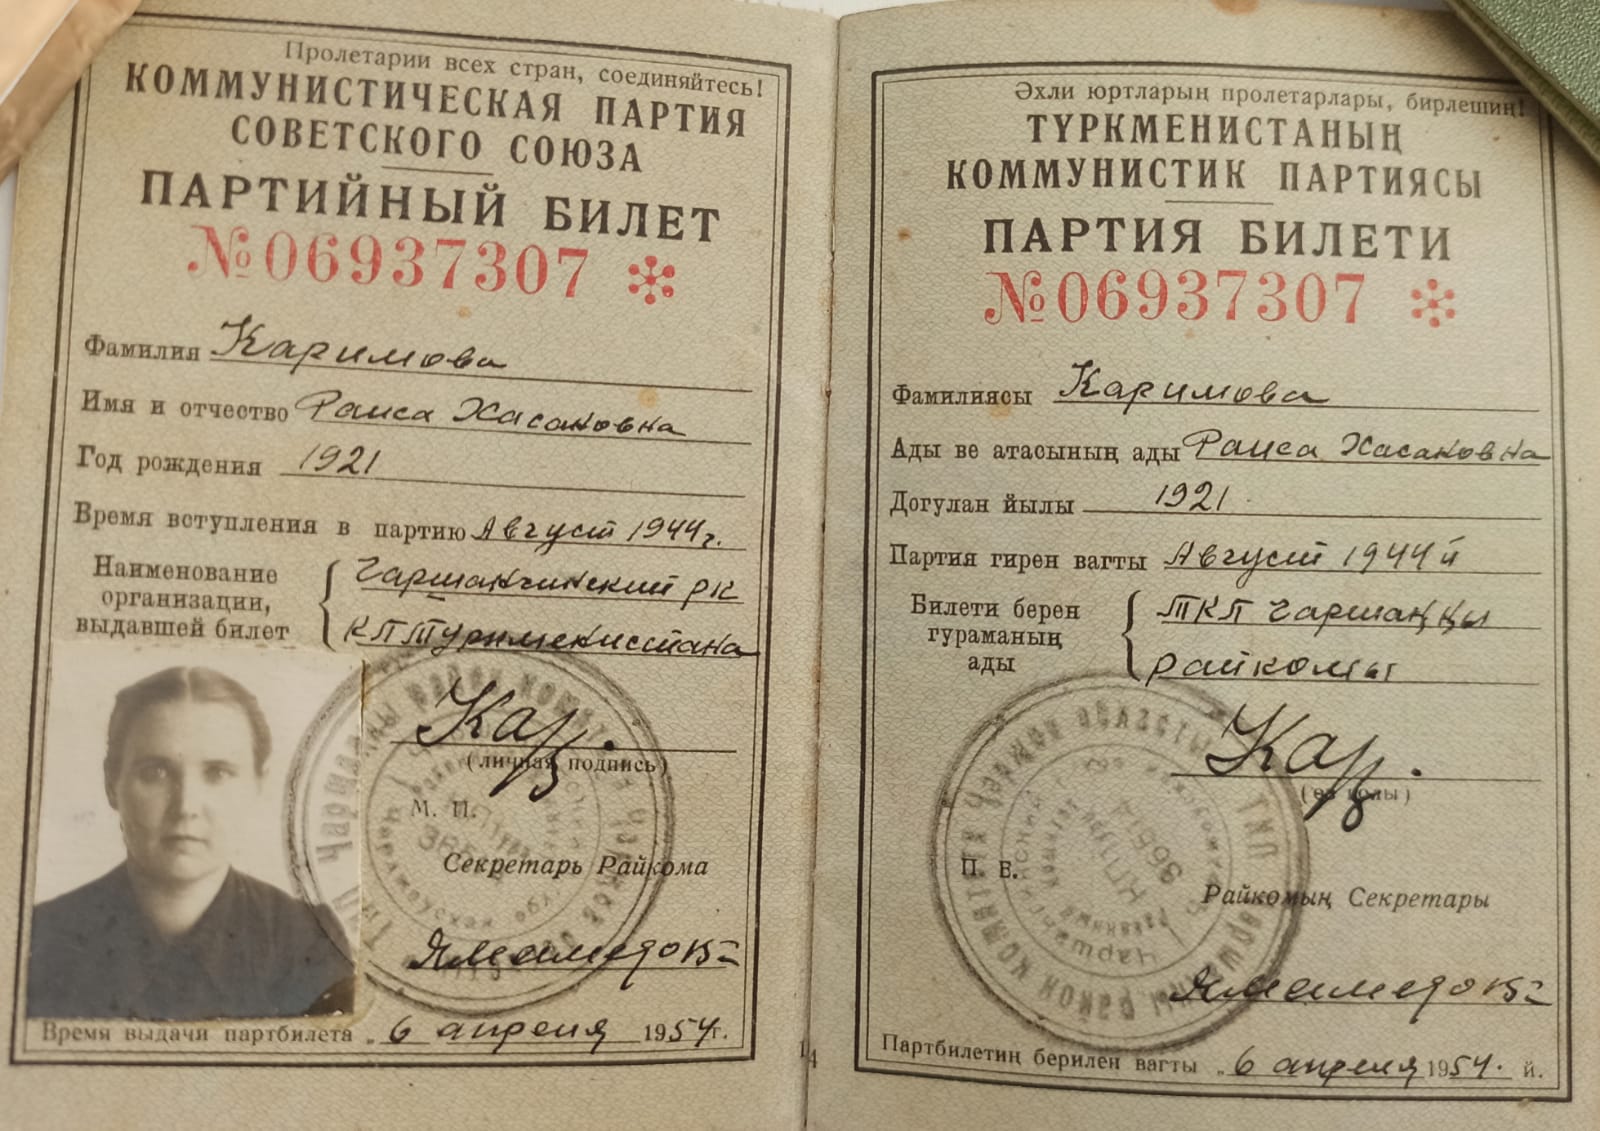 Пролетарии всех стран, соединяйтесь!
КОММУНИСТИЧЕСКАЯ ПАРТИЯ
СОВЕТСКОГО СОЮЗА
ПАРТИЙНЫЙ БИЛЕТ
№06937307
Фамилия Каримова
Имя и отчество Раиса Хасановна
Год рождения 1921
Время вступления в партию Август 1944г.
Наименование организации, выдавшей билет
Чаршангинский РК
КП Туркменистана
Кар.
(личная подпись)
М. П.
Секретарь Райкома
Время выдачи партбилета „6 апреля 1954г.
Әхли юртларың пролетарлары, бирлешиң!
ТҮРКМЕНИСТАНЫҢ
КОММУНИСТИК ПАРТИЯСЫ
ПАРТИЯ БИЛЕТИ
№06937307
Фамилиясы Каримова
Ады ве атасының ады Раиса Хасановна
Догулан йылы 1921
Партия гирен вагты Август 1944 й
Билети берен гураманың ады
ТКП Чаршаңңы
райкомы
Кар.
(өз голы)
П. Е.
Райкомың Секретары
Партбилетиң берилен вагты „6 апреля 1954. й.
14